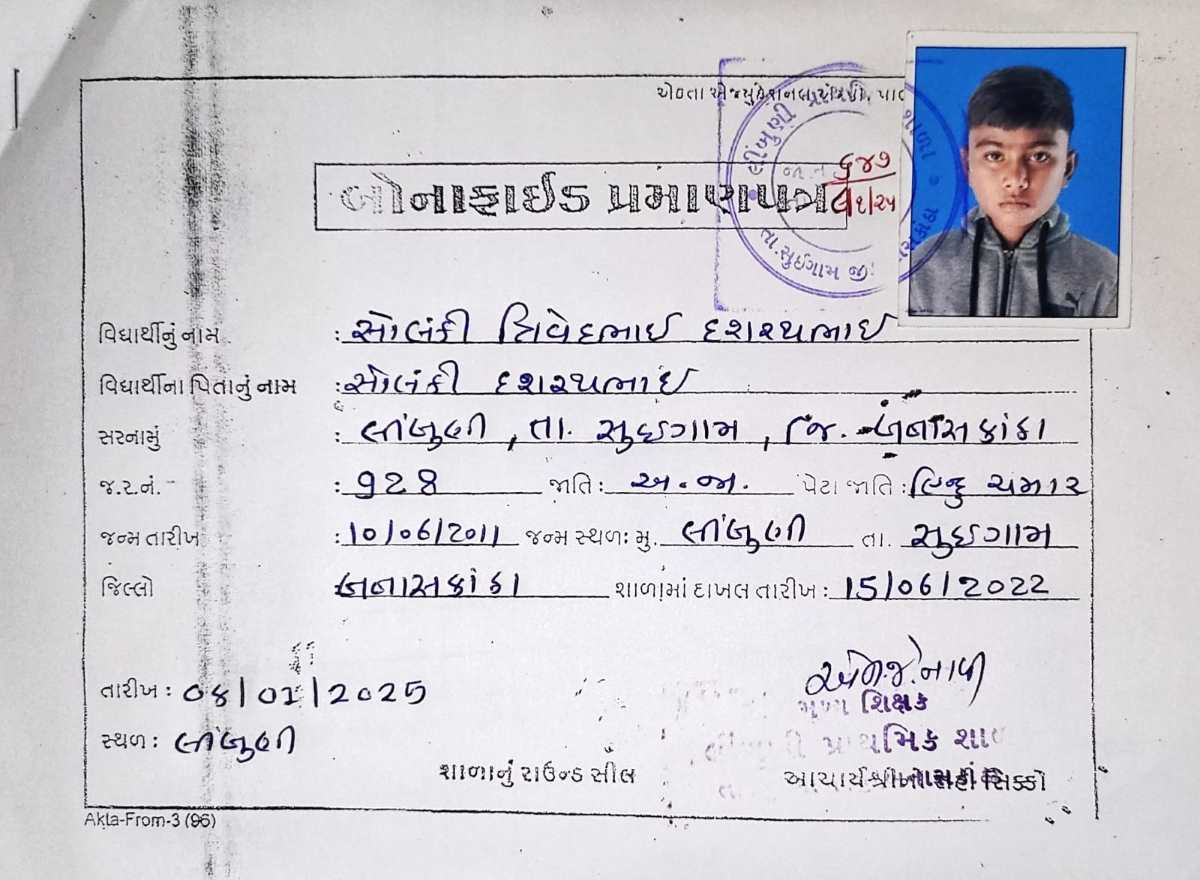 એકતા એજ્યુકેશનલ
લીંબુણી
જા.નં. ૬૪૭
બોનાફાઈડ પ્રમાણપત્ર
તા. સુઈગામ જી.
વિદ્યાર્થીનું નામ : સોલંકી ત્રિવેદભાઈ દશરથભાઈ
વિદ્યાર્થીના પિતાનું નામ : સોલંકી દશરથભાઈ
સરનામું : લીંબુણી, તા. સુઈગામ, જિ. બનાસકાંઠા
જ.ર.નં. : ૧૨૪ જાતિ : અ.જા. પેટા જાતિ : હિન્દુ ચમાર
જન્મ તારીખ : 10/06/2011 જન્મ સ્થળ: મુ. લીંબુણી તા. સુઈગામ
જિલ્લો બનાસકાંઠા શાળામાં દાખલ તારીખ : 15/06/2022
તારીખ : 08/01/2025
મુખ્ય શિક્ષક
સ્થળ : લીંબુણી
લીંબુણી પ્રાથમિક શાળા
શાળાનું રાઉન્ડ સીલ
આચાર્યશ્રીની સહી સિક્કો
Akta-From-3 (96)